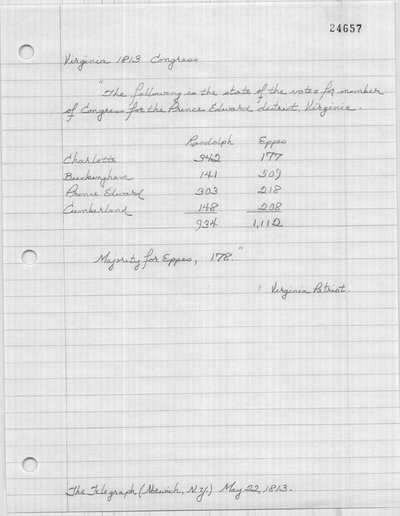 24657
Virginia 1813 Congress
"The following is the state of the votes for member
of Congress for the Prince Edward district, Virginia.
Randolph Eppes
Charlotte 342 177
Buckingham 141 509
Prince Edward 303 218
Cumberland 148 208
934 1,112
Majority for Eppes, 178."
Virginia Patriot.
The Telegraph (Norwich, N.Y.) May 22, 1813.